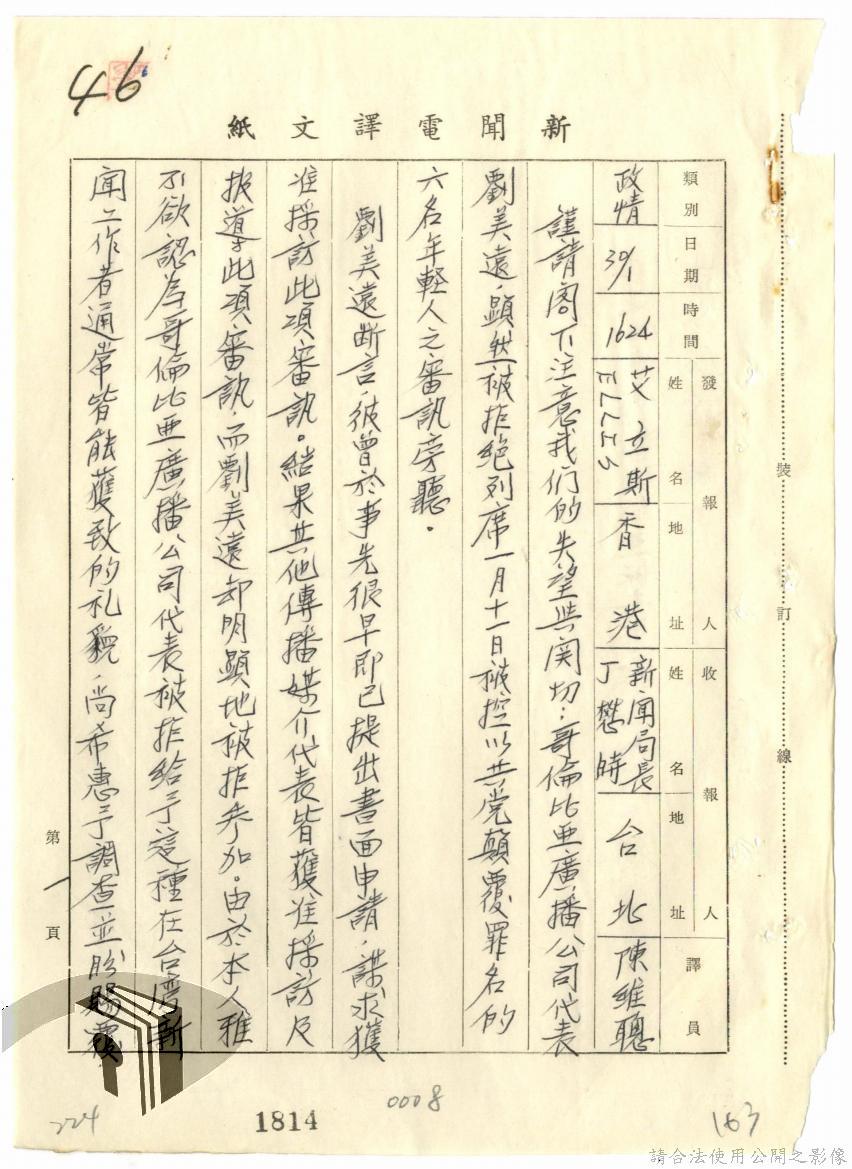 46
新聞電譯文紙
類別 日期 時間 發報人 姓名 地址 收報人 姓名 地址 譯員
政情 30/1 1624 艾立斯 ELLIS 香港 新聞局長 丁懋時 台北 陳維聰
謹請閣下注意我们的失望與関切：哥倫比亜廣播公司代表
劉美遠，顕然被拒絕列席一月十一日被控以共党顛覆罪名的
六名年軽人之審訊旁聽。
劉美遠断言，彼曾於事先很早即已提出書面申請，謀求獲
准採訪此項審訊。結果其他傳播媒介代表皆獲准採訪及
报導此項審訊，而劉美遠却明顕地被拒参加。由於本人雅
不欲認為哥倫比亜廣播公司代表被拒給予這種在台湾新
聞工作者通常皆能獲致的礼貌，尚希惠予調查並盼賜覆
第一頁
裝訂線
224
1814
0008
163
請合法使用公開之影像